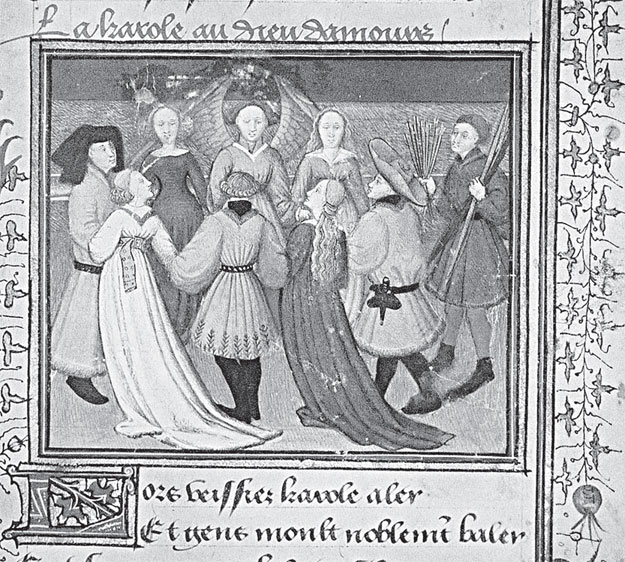 La karole au dieu damours
Lors veissiez karole aler
Et gens moult noblem̄t baler